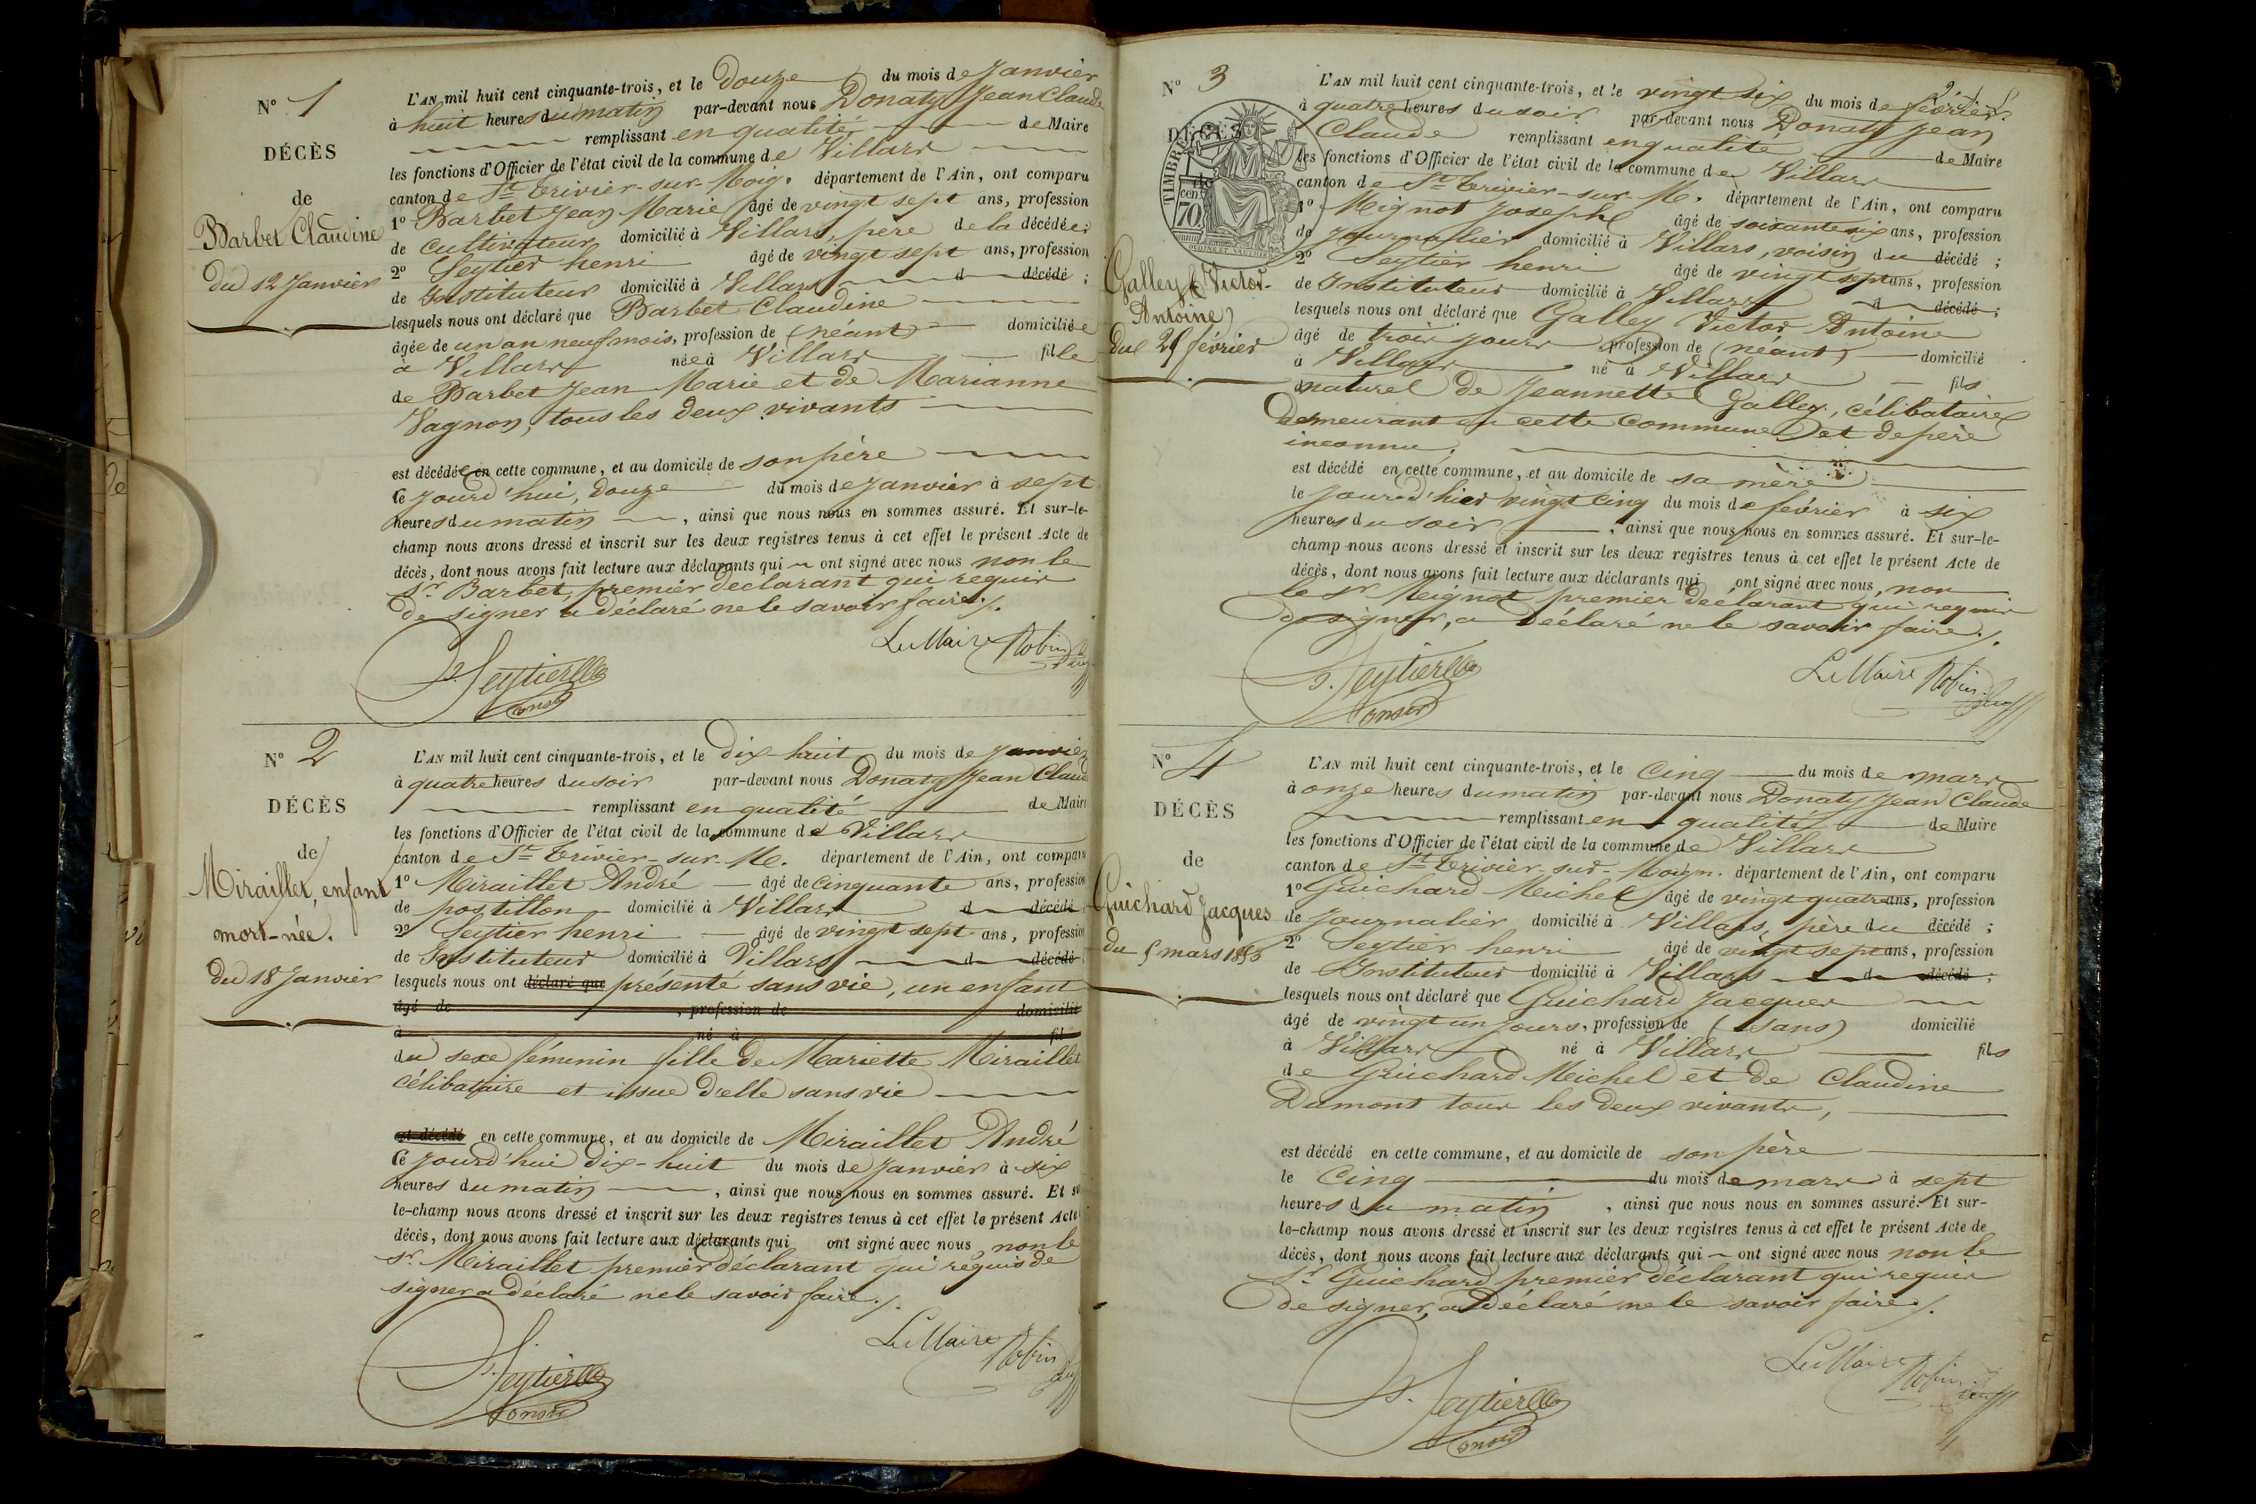 N° 1
DÉCÈS
de
Barbet Claudine
du 12 Janvier
L'AN mil huit cent cinquante-trois, et le douze du mois de Janvier
à huit heures du matin par-devant nous Donaty Jean Claude
remplissant en qualité de Maire
les fonctions d'Officier de l'état civil de la commune de Villars
canton de St Trivier-sur-Moig. département de l'Ain, ont comparu
1° Barbet Jean Marie âgé de vingt sept ans, profession
de cultivateur domicilié à Villars, père de la décédée;
2° Seytier henri âgé de vingt sept ans, profession
de Instituteur domicilié à Villars d décédé ;
lesquels nous ont déclaré que Barbet Claudine
âgée de un an neuf mois, profession de (néant) domiciliée
à Villars née à Villars fille
de Barbet Jean Marie et de Marianne
Vagnon, tous les deux vivants
est décédée en cette commune, et au domicile de son père
Ce jourd'hui, douze du mois de Janvier à sept
heures du matin, ainsi que nous nous en sommes assuré. Et sur-le-
champ nous avons dressé et inscrit sur les deux registres tenus à cet effet le présent Acte de
décès, dont nous avons fait lecture aux déclarants qui ont signé avec nous non le
Sr Barbet, premier déclarant qui requis
de signer a déclaré ne le savoir faire./.
Le Maire Robin
Seytier
N° 2
DÉCÈS
de
Miraillet, enfant
mort-née.
du 18 Janvier
L'AN mil huit cent cinquante-trois, et le dix huit du mois de Janvier
à quatre heures du soir par-devant nous Donaty Jean Claude
remplissant en qualité de Maire
les fonctions d'Officier de l'état civil de la commune de Villars
canton de St Trivier-sur-M. département de l'Ain, ont comparu
1° Miraillet André âgé de cinquante ans, profession
de postillon domicilié à Villars d décédé
2° Seytier henri âgé de vingt sept ans, profession
de Instituteur domicilié à Villars d décédé
lesquels nous ont déclaré que présenté sans vie, un enfant
âgé de , profession de domicilié
à né à fil
du sexe féminin fille de Mariette Miraillet
célibataire et issue d'elle sans vie
est décédé en cette commune, et au domicile de Miraillet André
Ce jourd'hui dix-huit du mois de Janvier à six
heures du matin, ainsi que nous nous en sommes assuré. Et sur
le-champ nous avons dressé et inscrit sur les deux registres tenus à cet effet le présent Acte
décès, dont nous avons fait lecture aux déclarants qui ont signé avec nous, non le
Sr. Miraillet premier déclarant qui requis de
signer a déclaré ne le savoir faire./.
Le Maire Robin
Seytier
N° 3
DÉCÈS
de
TIMBRE
cent
70
Galley Victor-
Antoine
Du 25 février
L'AN mil huit cent cinquante-trois, et le vingt six du mois de février
à quatre heures du soir par-devant nous Donaty Jean
Claude remplissant en qualité de Maire
les fonctions d'Officier de l'état civil de la commune de Villars
canton de St Trivier-sur-M. département de l'Ain, ont comparu
1° Mignot Joseph âgé de soixante six ans, profession
de Journalier domicilié à Villars, voisin du décédé ;
2° Seytier henri âgé de vingt sept ans, profession
de Instituteur domicilié à Villars d décédé ;
lesquels nous ont déclaré que Galley Victor Antoine
âgé de trois jours profession de (néant) domicilié
à Villars né à Villars fils
naturel de Jeannette Galley, célibataire
demeurant en cette commune et de père
inconnu.
est décédé en cette commune, et au domicile de sa mère
le jour d'hier vingt cinq du mois de février à six
heures du soir, ainsi que nous nous en sommes assuré. Et sur-le-
champ nous avons dressé et inscrit sur les deux registres tenus à cet effet le présent Acte de
décès, dont nous avons fait lecture aux déclarants qui ont signé avec nous, non
le Sr Mignot premier déclarant qui requis
de signer, a déclaré ne le savoir faire./.
Le Maire Robin
Seytier
N° 4
DÉCÈS
de
Guichard Jacques
du 5 mars 1853
L'AN mil huit cent cinquante-trois, et le cinq du mois de mars
à onze heures du matin par-devant nous Donaty Jean Claude
remplissant en qualité de Maire
les fonctions d'Officier de l'état civil de la commune de Villars
canton de St Trivier-sur-Moign. département de l'Ain, ont comparu
1° Guichard Michel âgé de vingt quatre ans, profession
de Journalier domicilié à Villars, père du décédé ;
2° Seytier henri âgé de vingt sept ans, profession
de Instituteur domicilié à Villars d décédé ;
lesquels nous ont déclaré que Guichard Jacques
âgé de vingt un jours, profession de (sans) domicilié
à Villars né à Villars fils
de Guichard Michel et de Claudine
Dumont tous les deux vivants,
est décédé en cette commune, et au domicile de son père
le cinq du mois de mars à sept
heures du matin, ainsi que nous nous en sommes assuré. Et sur-
le-champ nous avons dressé et inscrit sur les deux registres tenus à cet effet le présent Acte de
décès, dont nous avons fait lecture aux déclarants qui ont signé avec nous non le
Sr Guichard premier déclarant qui requis
de signer, a déclaré ne le savoir faire./.
Le Maire Robin
Seytier